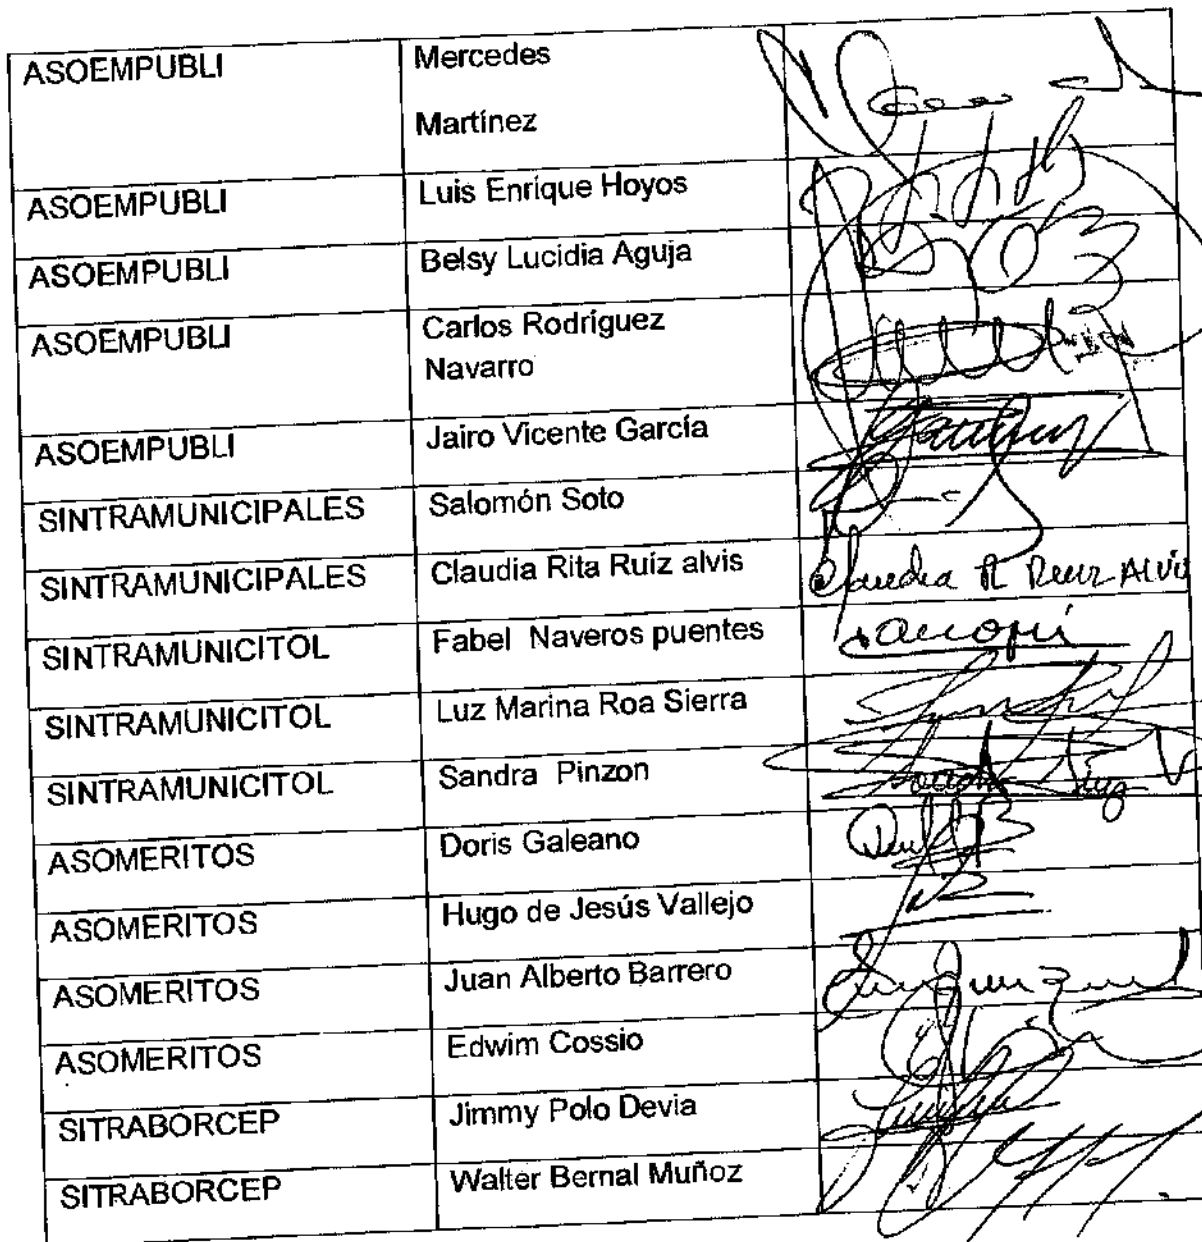 ASOEMPUBLI Mercedes
Martínez
ASOEMPUBLI Luis Enrique Hoyos
ASOEMPUBLI Belsy Lucidia Aguja
ASOEMPUBLI Carlos Rodríguez
Navarro
ASOEMPUBLI Jairo Vicente García
SINTRAMUNICIPALES Salomón Soto
SINTRAMUNICIPALES Claudia Rita Ruíz alvis Claudia R Ruiz Alvis
SINTRAMUNICITOL Fabel Naveros puentes
SINTRAMUNICITOL Luz Marina Roa Sierra
SINTRAMUNICITOL Sandra Pinzon
ASOMERITOS Doris Galeano
ASOMERITOS Hugo de Jesús Vallejo
ASOMERITOS Juan Alberto Barrero
ASOMERITOS Edwim Cossio
SITRABORCEP Jimmy Polo Devia
SITRABORCEP Walter Bernal Muñoz